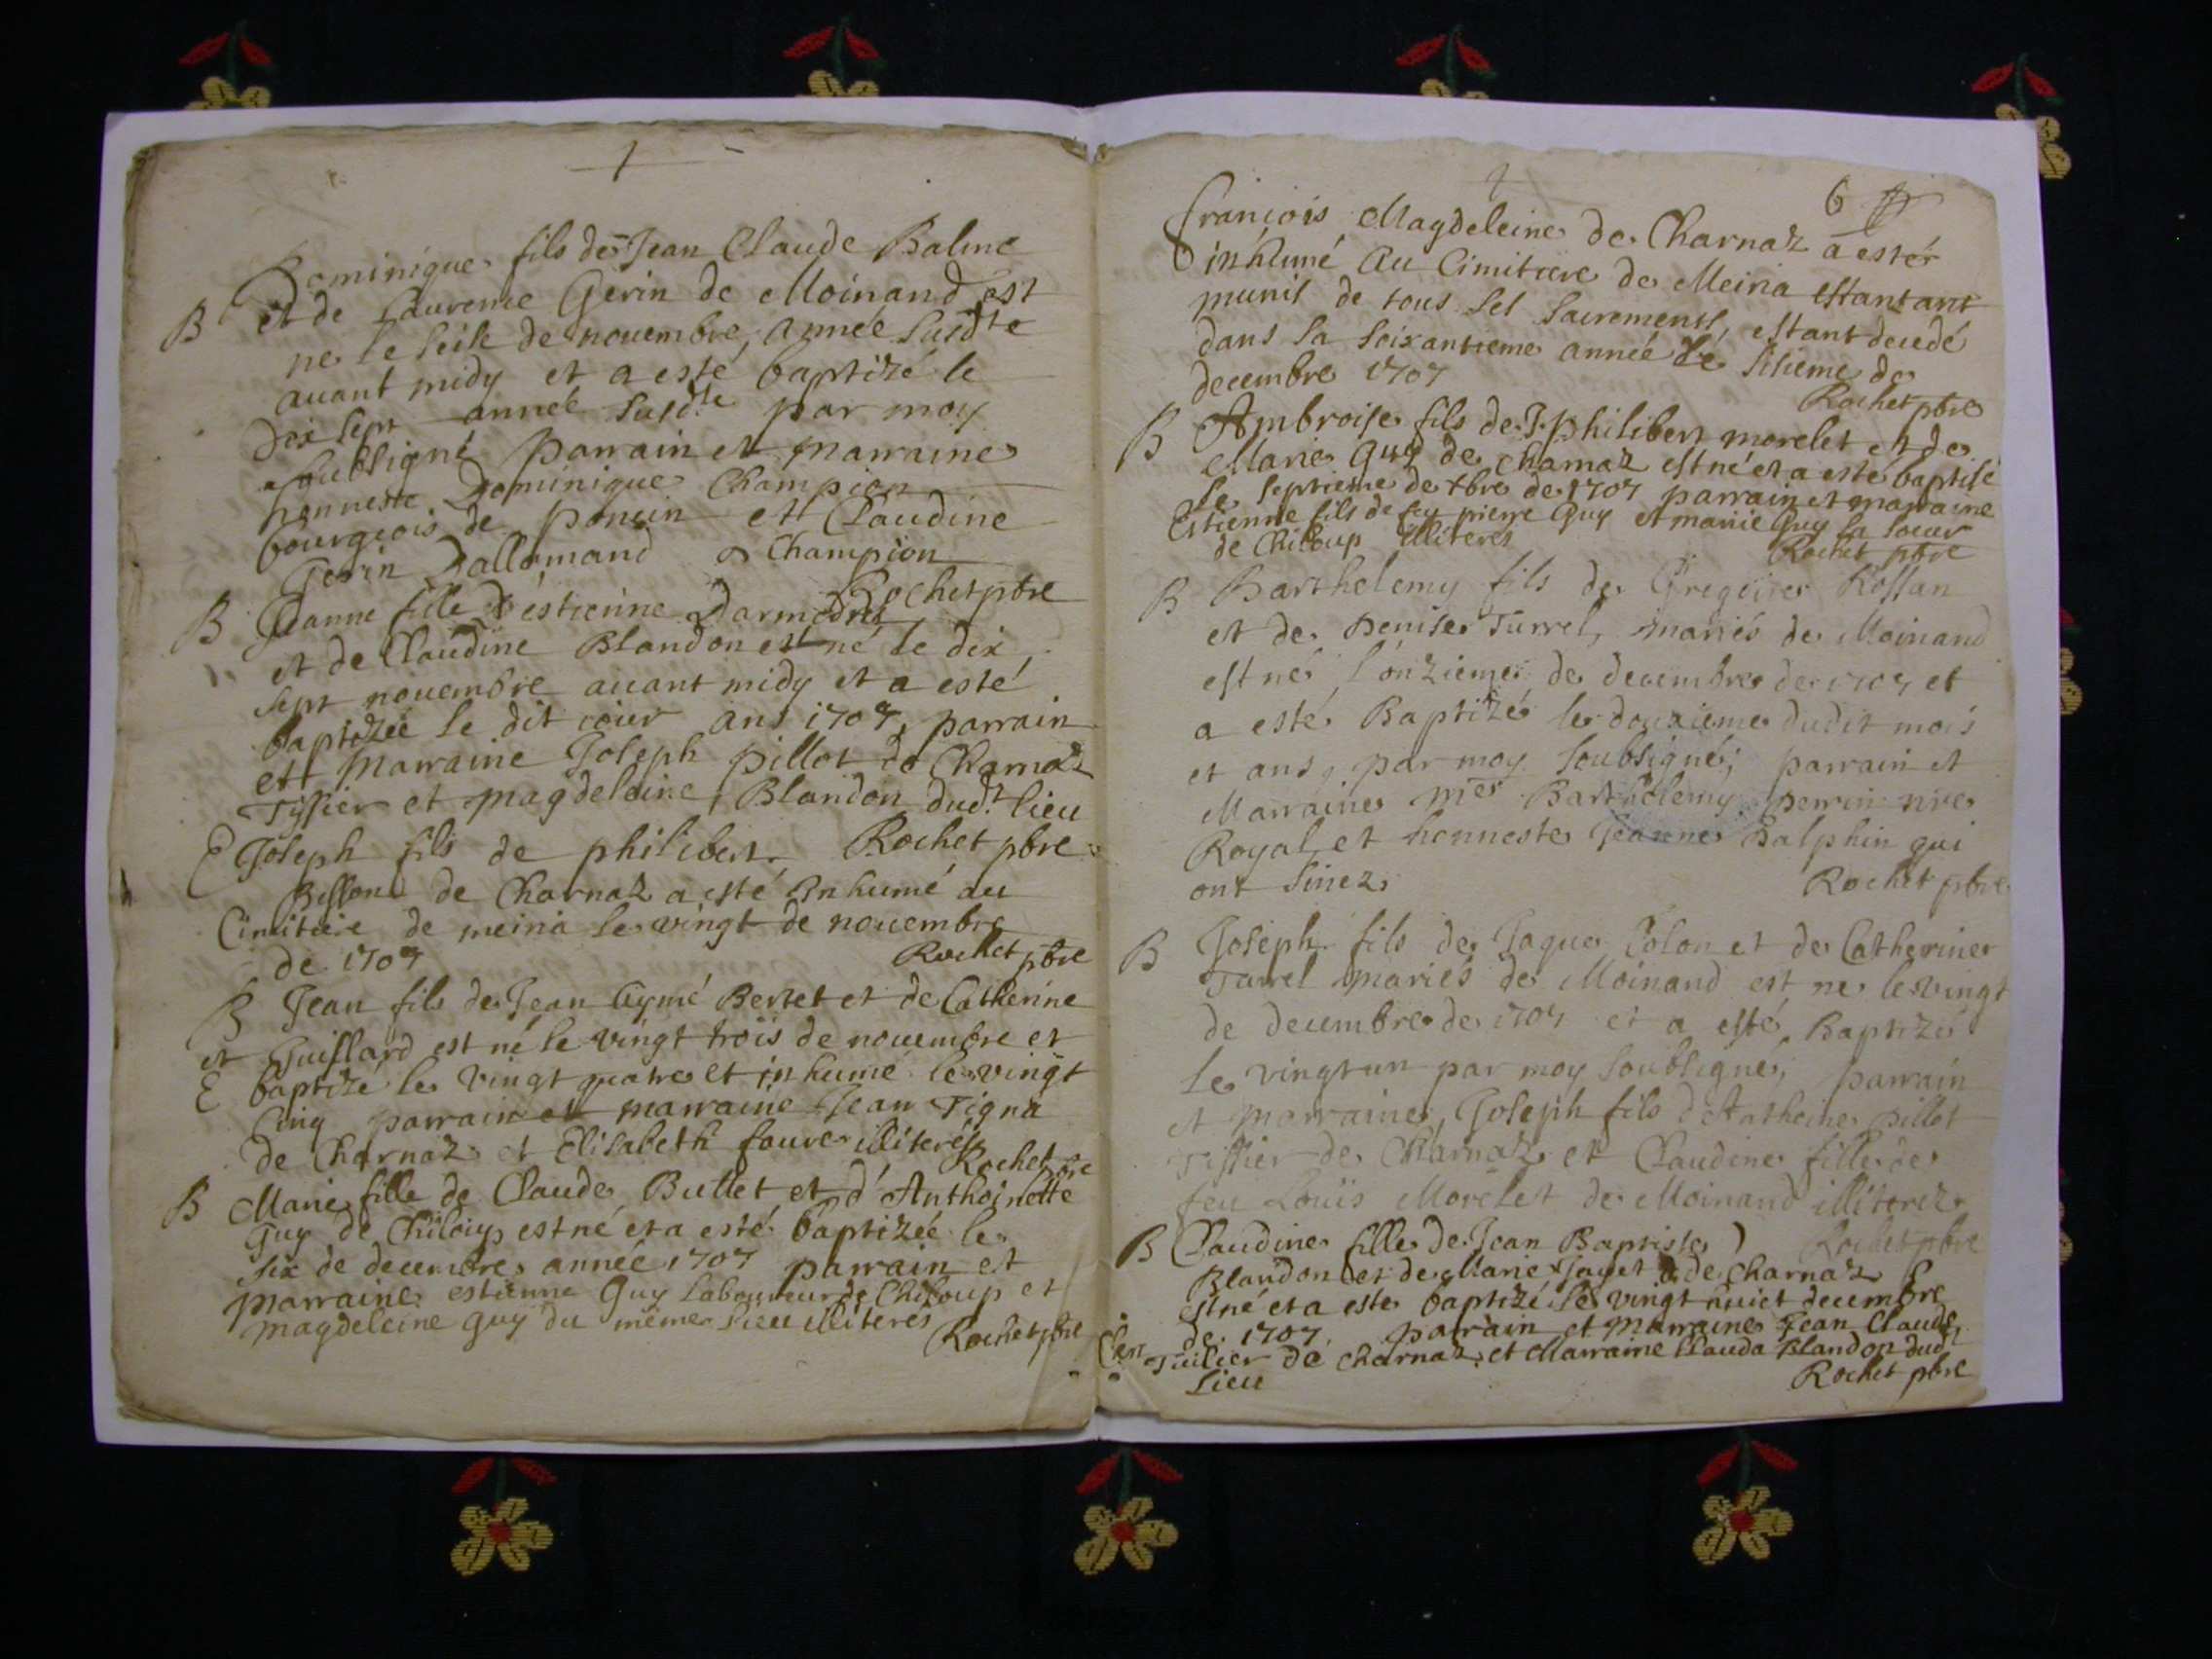 Dominique fils de Jean Claude Balme
B et de Laurence Gerin de Moinand est
ne le seise de nouembre, année susdte
auant midy et a esté baptizé le
dix sept année susdte par moy
soubsigné parrain et marraine
honneste Dominique Champion
bourgeois de poncin ett Claudine
Gerin Dallemand Champion
Rochet pbre
B Jeanne fille d'estienne Darmedru
et de Claudine Blandon est né le dix
sept nouembre auant midy et a esté
baptizée le dit iour ans 1707, parrain
ett marraine Joseph pillot de Charnaz
Tissier et magdeleine Blandon dudt lieu
E Joseph fils de philibert Rochet pbre
Besson de Charnaz a esté Inhumé au
Cimitiere de meiria le vingt de nouembre
de 1707 Rochet pbre
B Jean fils de Jean Aymé Bertet et de Catherine
et Guillard est né le vingt trois de nouembre et
E baptizé le vingt quatre et inhumé le vingt
Cinq parrain ett marraine Jean Tigna
de Charnaz et Elisabeth faure illiterés
Rochet pbre
B Marie fille de Claude Bullet et d'Anthoinette
Guy de Chiloup est né et a esté baptizée le
six de decembre année 1707 parrain et
marraine estienne Guy laboureur de Chiloup et
magdeleine guy du même lieu illiteres
Rochet pbre
6
françois Magdeleine de Charnaz a esté
inhumé au Cimitiere de Meiria estant
munis de tous ses sacrements, estant decedé
dans sa soixantieme année le sisieme de
decembre 1707
Rochet pbre
B Ambroise fils de J. philibert morelet et de
Marie Guy de Charnaz est né et a esté baptisé
le septieme de xbre de 1707 parrain et marraine
Estienne fils de feu pierre Guy et marie Guy sa soeur
de Chiloup illiteres
Rochet pbre
B Barthelemy fils de Gregoire Rossan
et de Denise Turrel, mariés de Moinand
est né l'onzieme de decembre de 1707 et
a esté Baptizé le douzieme dudit mois
et ans, par moy soubsigné; parrain et
Marraine mes Barthelemy perrin nre
Royal et honneste Jeanne Balphin qui
ont sinez
Rochet pbre
B Joseph fils de Jaque Colon et de Catherine
Turrel mariés de Moinand est ne le vingt
de decembre de 1707 et a esté Baptizé
le vingtun par moy soubsigné, parrain
et marraine, Joseph fils d'Anthoine pillot
Tissier de Charnaz et Claudine fille de
feu Louis Morelet de Moinand illiterez
Rochet pbre
B Claudine fille de Jean Baptiste
Blandon et de Marie Jayet de Charnaz
est né et a esté baptizé le vingt huict decembre
de 1707, parrain et marraine Jean Claude
Tuilier de Charnaz, et Marraine Clauda Blandon dudt
lieu
Rochet pbre